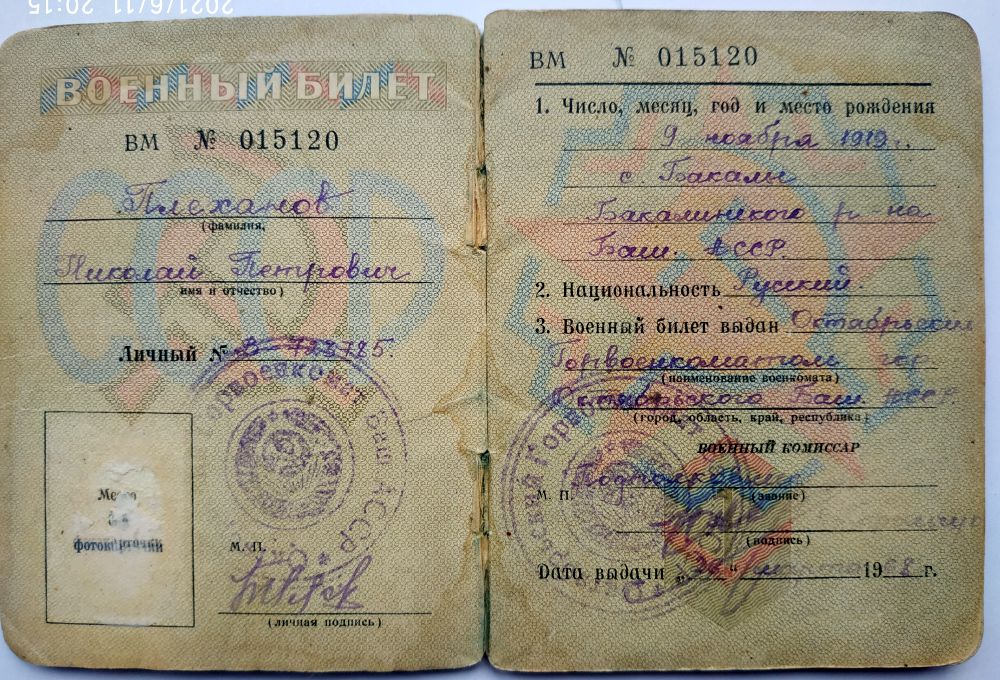 2021/6/11 20:15
ВОЕННЫЙ БИЛЕТ
ВМ № 015120
Плеханов
(фамилия,
Николай Петрович
имя и отчество)
Личный №
Место
для
фотокарточки
М. П.
(личная подпись)
ВМ № 015120
1. Число, месяц, год и место рождения
9 ноября 1919 г.
с. Бакалы
Бакалинского р-на
Баш. АССР.
2. Национальность Русский.
3. Военный билет выдан Октябрьским
Горвоенкоматом гор.
(наименование военкомата)
Октябрьского Баш. АССР.
(город, область, край, республика)
ВОЕННЫЙ КОМИССАР
Подполковник
М. П. (звание)
(подпись)
Дата выдачи 1968 г.